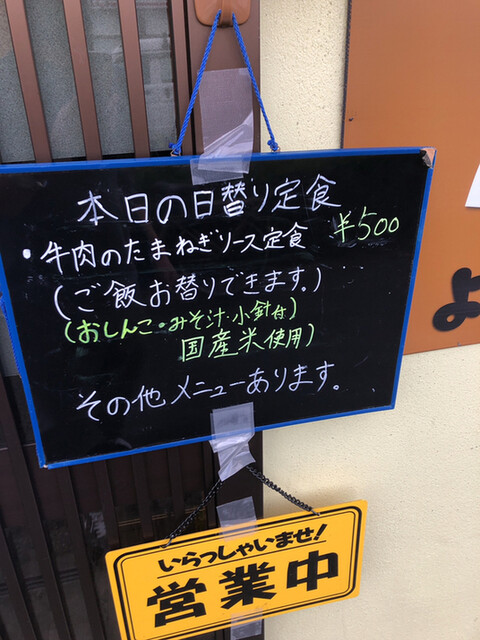 本日の日替り定食
・牛肉のたまねぎソース定食 ¥500
(ご飯お替りできます。)
(おしんこ・みそ汁・小針付)
国産米使用)
その他メニューあります。
よ
いらっしゃいませ!
営業中